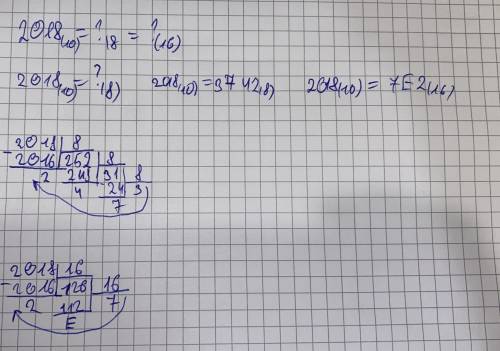 2018(10) = ?(8) = ?(16)
2018(10) = ?(8) 2018(10) = 3742(8) 2018(10) = 7E2(16)
2018 | 8
- 2016 | 252 | 8
2 24 | 31 | 8
4 24 3
7
2018 | 16
- 2016 | 126 | 16
2 112 7
E